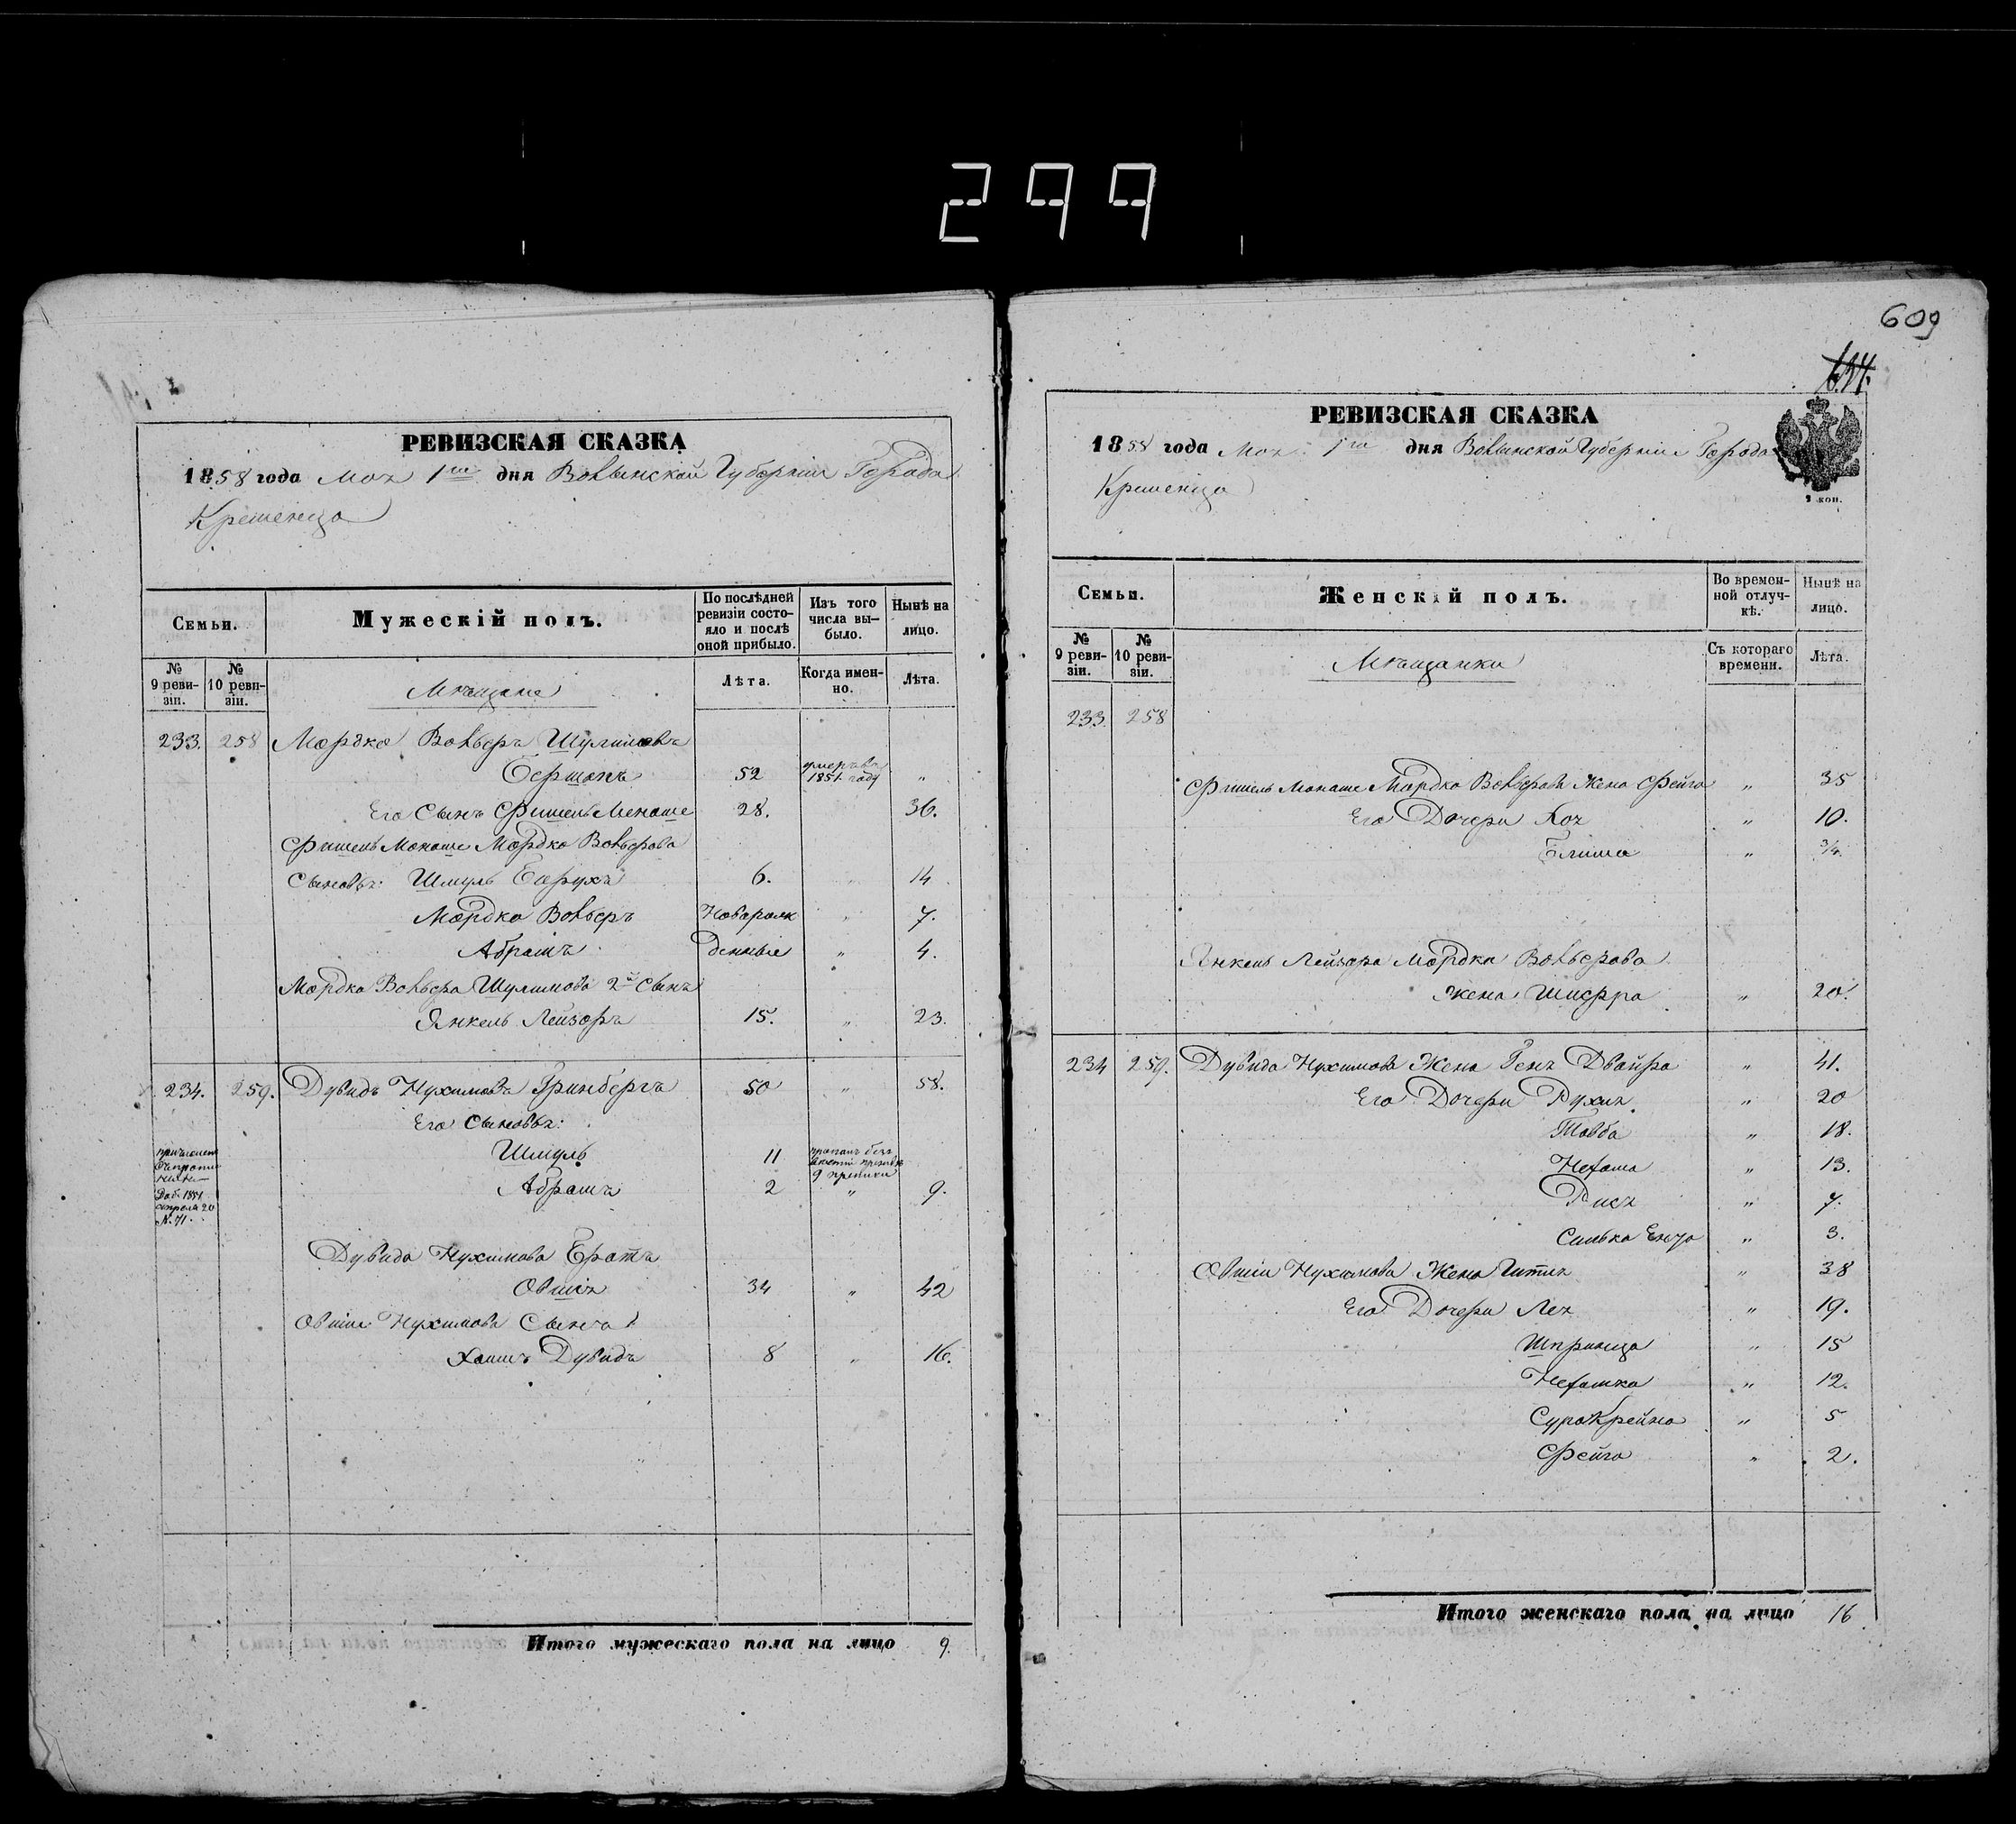 299
РЕВИЗСКАЯ СКАЗКА
1858 года Мая 1го дня Волынской Губерніи Города
Кременца
Семьи.
Мужескій полъ.
По послѣдней ревизіи состояло и послѣ оной прибыло.
Изъ того числа выбыло.
Нынѣ на лицо.
№ 9 ревизіи.
№ 10 ревизіи.
Мѣщане
Лѣта.
Когда именно.
Лѣта.
233. 258 Мордко Вольберъ Шулимовъ
52 умеръ въ 1851 году "
Его Сынъ Фишель Монаше 28. 36.
Фишель Монаше Мордко Вольберова
Сыновья: Шмуль Борухъ 6. " 14
Мордко Вольберъ Новорож " 7.
Абрамъ денные " 4.
Мордко Вольбера Шулимова 2й Сынъ
Янкель Лейзоръ 15. " 23.
234. 259. Дувидъ Нухимовъ Гринбергъ 50 " 58.
Его Сыновья:
Шмуль 11 пропалъ безъ
Абрамъ 2 " 9.
1851 апреля 20
№ 71
Дувида Нухимова Братъ
Овшія 34 " 42
Овшіи Нухимова Сынъ
Хаимъ Дувидъ 8 " 16.
Итого мужескаго пола на лицо 9.
609
РЕВИЗСКАЯ СКАЗКА
1858 года Мая 1го дня Волынской Губерніи Города
Кременца
3 коп.
Семьи.
Женскій полъ.
Во временной отлучкѣ.
Нынѣ на лицо.
№ 9 ревизіи.
№ 10 ревизіи.
Мѣщанки
Съ котораго времени.
Лѣта.
233. 258
Фишель Монаше Мордко Вольберова Жена Фейга " 35
Его Дочери Хая " 10.
" 3/4.
Янкель Лейзора Мордко Вольберова
Жена Шифра " 20.
234 259. Дувида Нухимова Жена Геня Двойра " 41.
Его Дочери Рухля " 20
Товба " 18.
Нехама " 13.
Рися " 7.
" 3.
Овшіи Нухимова Жена Гитля " 38
Его Дочери Лея " 19.
Шпринца " 15
Нехамка " 12.
Сура Крейна " 5
Фейга " 2.
Итого женскаго пола на лицо 16